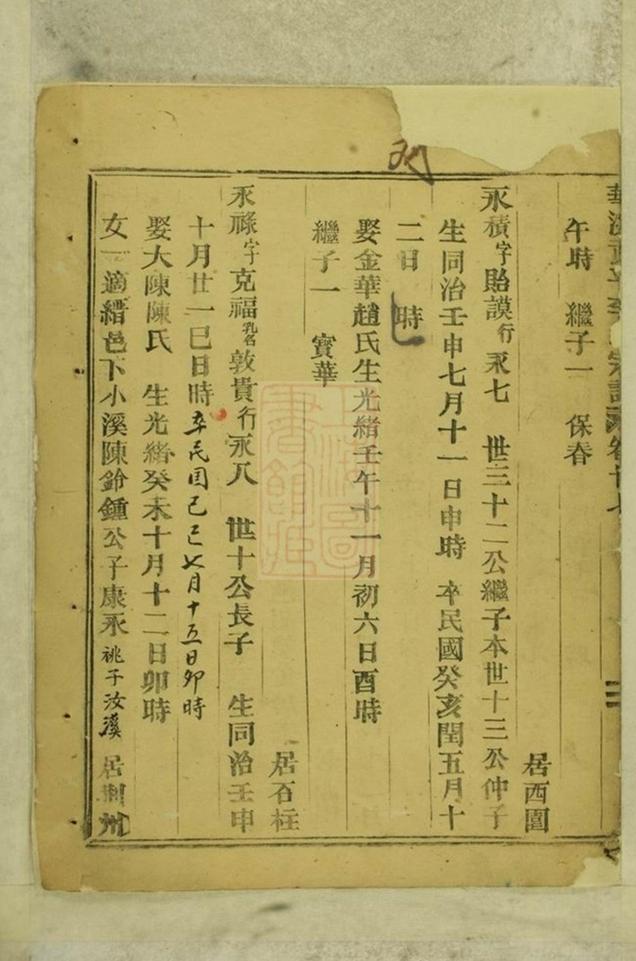 午時 繼子一 保春
居西園
永積字貽謨行永七 世三十二公繼子本世十三公仲子
生同治壬申七月十一日申時 卒民國癸亥閏五月十
二日 時
娶金華趙氏生光緒壬午十一月初六日酉時
繼子一 寶華
居石柱
永祿字克福乳名敦貴行永八 世十公長子 生同治壬申
十月廿一巳日時卒民国己巳七月十五日卯時
娶大陳陳氏 生光緒癸未十月十二日卯時
女一適縉邑下小溪陳鈴鍾公子康永 祧子汝溪 居荆州